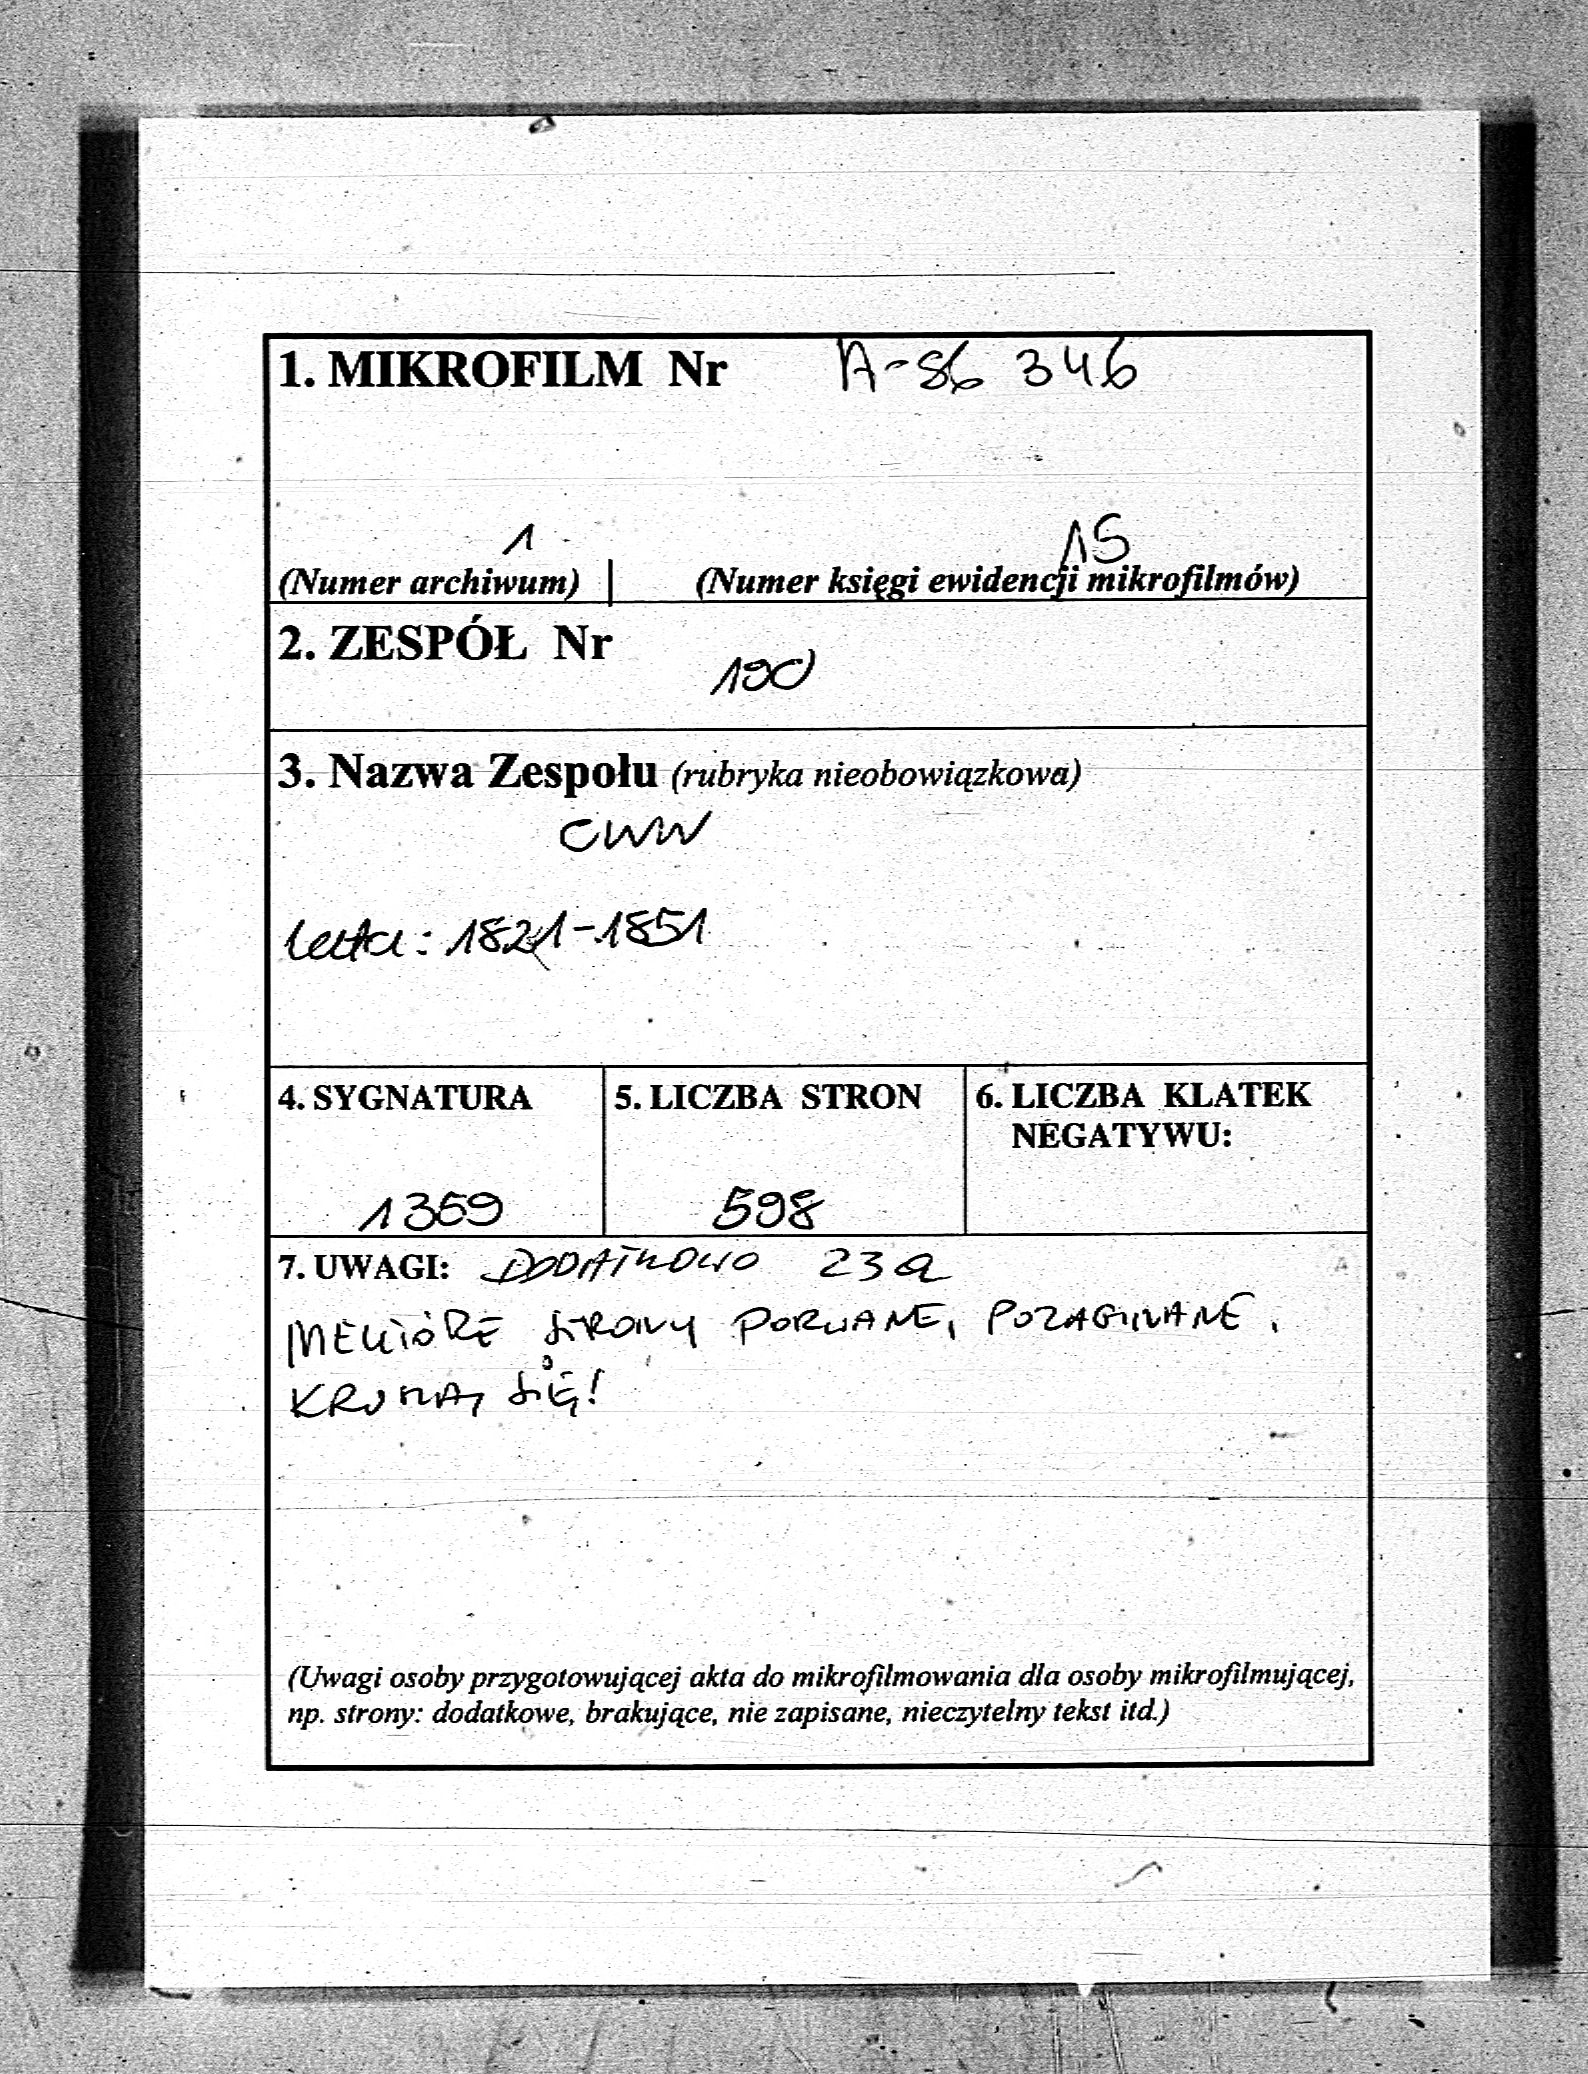 1. MIKROFILM Nr A-86 346
1 15
(Numer archiwum) | (Numer księgi ewidencji mikrofilmów)
2. ZESPÓŁ Nr 190
3. Nazwa Zespołu (rubryka nieobowiązkowa)
CWW
lata: 1821-1851
4. SYGNATURA 5. LICZBA STRON 6. LICZBA KLATEK
NEGATYWU:
1369 598
7. UWAGI: DODATKOWO 23a
NIEKTÓRE STRONY PORWANE, POZAGINANE.
KRUSZĄ SIĘ!
(Uwagi osoby przygotowującej akta do mikrofilmowania dla osoby mikrofilmującej,
np. strony: dodatkowe, brakujące, nie zapisane, nieczytelny tekst itd.)